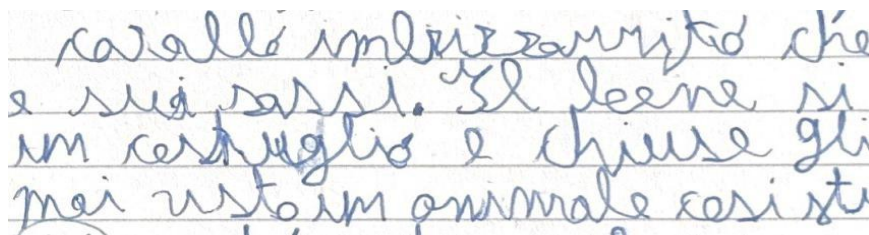 cavallo imbrizzaurito che
e sui sassi. Il leone si
un cestuglio e chiuse gli
mai usto un animale cosi sti